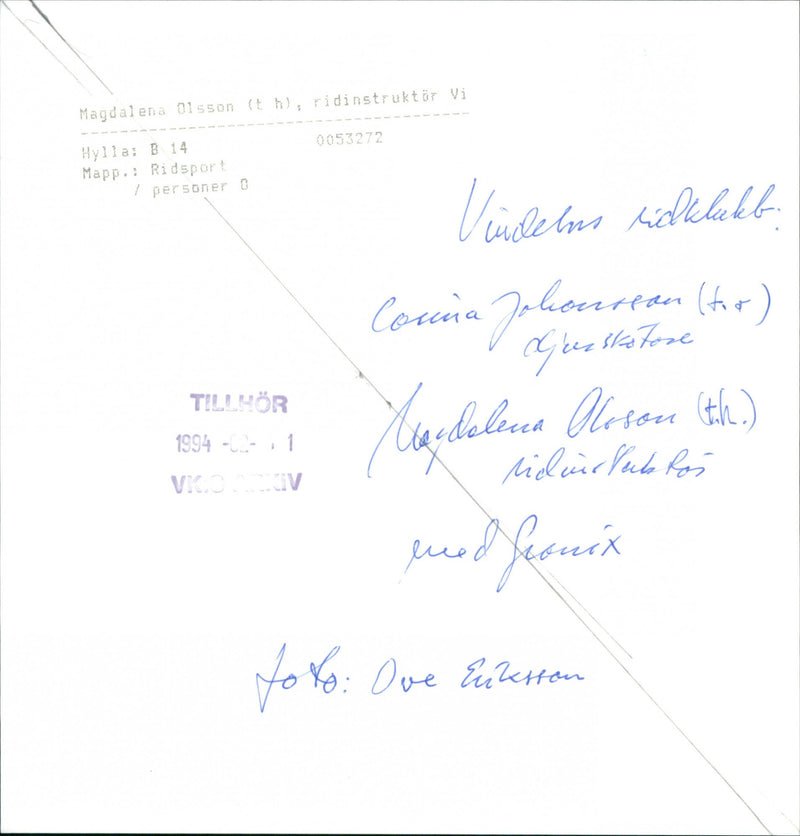 Magdalena Olsson (t h), ridinstruktör Vi
Hylla: B 14 0053272
Mapp.: Ridsport
/ personer O
Vindelns ridklubb:
Corina Johansson (t.v)
djurskötare
Magdalena Olsson (t.h.)
ridinstruktör
med Gronix
TILLHÖR
1994 -02- 1
VK:S ARKIV
foto: Ove Eriksson